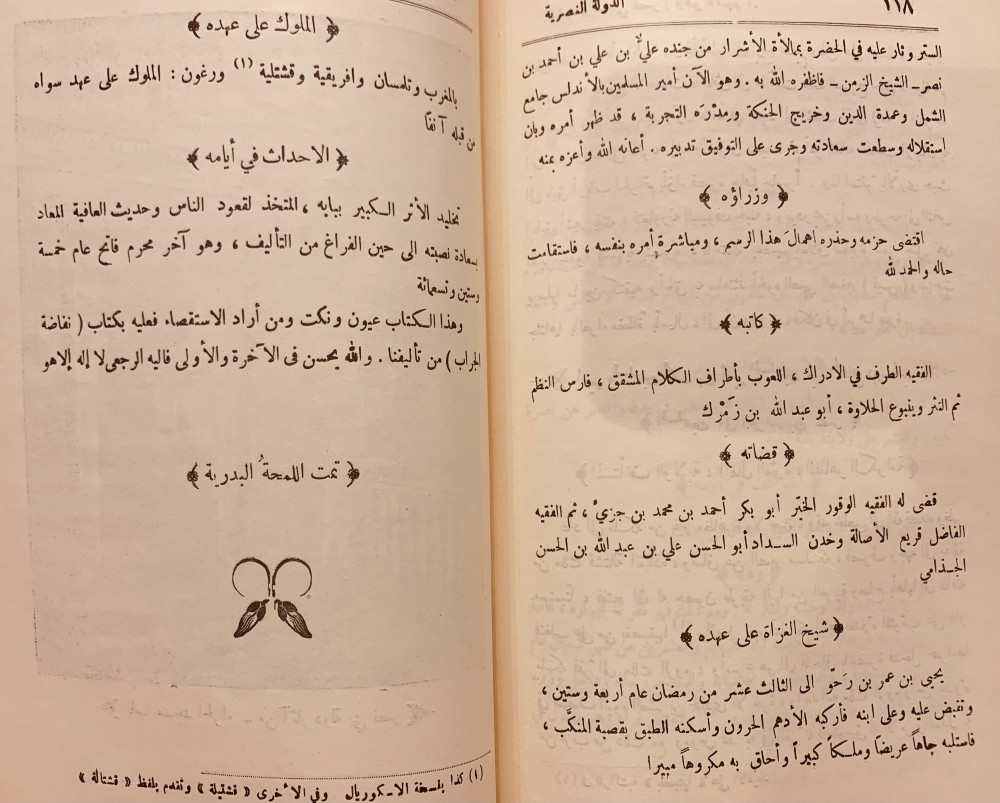 ١١٨
الدولة النصرية
الستر وثار عليه في الحضرة بمالأة الأشرار من جنده عليّ بن علي بن أحمد بن
نصر ـ الشيخ الزمن ـ فاظفره الله به . وهو الآن أمير المسلمين بالأندلس جامع
الشمل وعمدة الدين وخريج الحنكة ومِدْرَه التجربة ، قد ظهر أمره وبان
استقلاله وسطعت سعادته وجرى على التوفيق تدبيره . أعانه الله وأعزه بمنه
﴿ وزراؤه ﴾
اقتضى حزمه وحذره اهمالَ هذا الرسم ، ومباشرة أمره بنفسه ، فاستقامت
حاله والحمد لله
﴿ كاتبه ﴾
الفقيه الطرف في الادراك ، اللعوب بأطراف الكلام المشقق ، فارس النظم
ثم النثر وينبوع الحلاوة ، أبو عبد الله بن زَمْرك
﴿ قضاته ﴾
قضى له الفقيه الوقور الخيّر أبو بكر أحمد بن محمد بن جزيّ ، ثم الفقيه
الفاضل قريع الأصالة وخدن السـداد أبو الحسن علي بن عبد الله بن الحسن
الجـذامي
﴿ شيخ الغزاة على عهده ﴾
يحيى بن عمر بن رَحّو الى الثالث عشر من رمضان عام أربعة وستين ،
وتقبض عليه وعلى ابنه فأركبه الأدهم الحرون وأسكنه الطبق بقصبة المنكَّب ،
فاستلبه جاهاً عريضاً وملـكاً كبيراً وأحاق به مكروهاً مبيرا
﴿ الملوك على عهده ﴾
بالمغرب وتلمسان وافريقية وقشتلية (١) ورغون : الملوك على عهد سواه
من قبله آنفًا
﴿ الاحداث في أيامه ﴾
تخليد الأثر الكبير ببابه ، المتخذ لقعود الناس وحديث العافية المعاد
بسعادة نصبته الى حين الفراغ من التأليف ، وهو آخر محرم فاتح عام خمسة
وستين وتسعمائة
وهذا الكتاب عيون ونكت ومن أراد الاستقصاء فعليه بكتاب ( نفاضة
الجراب ) من تأليفنا . والله يحسن فى الآخرة والأولى فاليه الرجعى لا إله إلا هو
﴿ تمت اللمحةُ البدرية ﴾
(١) كذا بلسخة الاسكوريال وفي الأخرى « قشقيلة » وتقدم بلفظ « قشتالة »